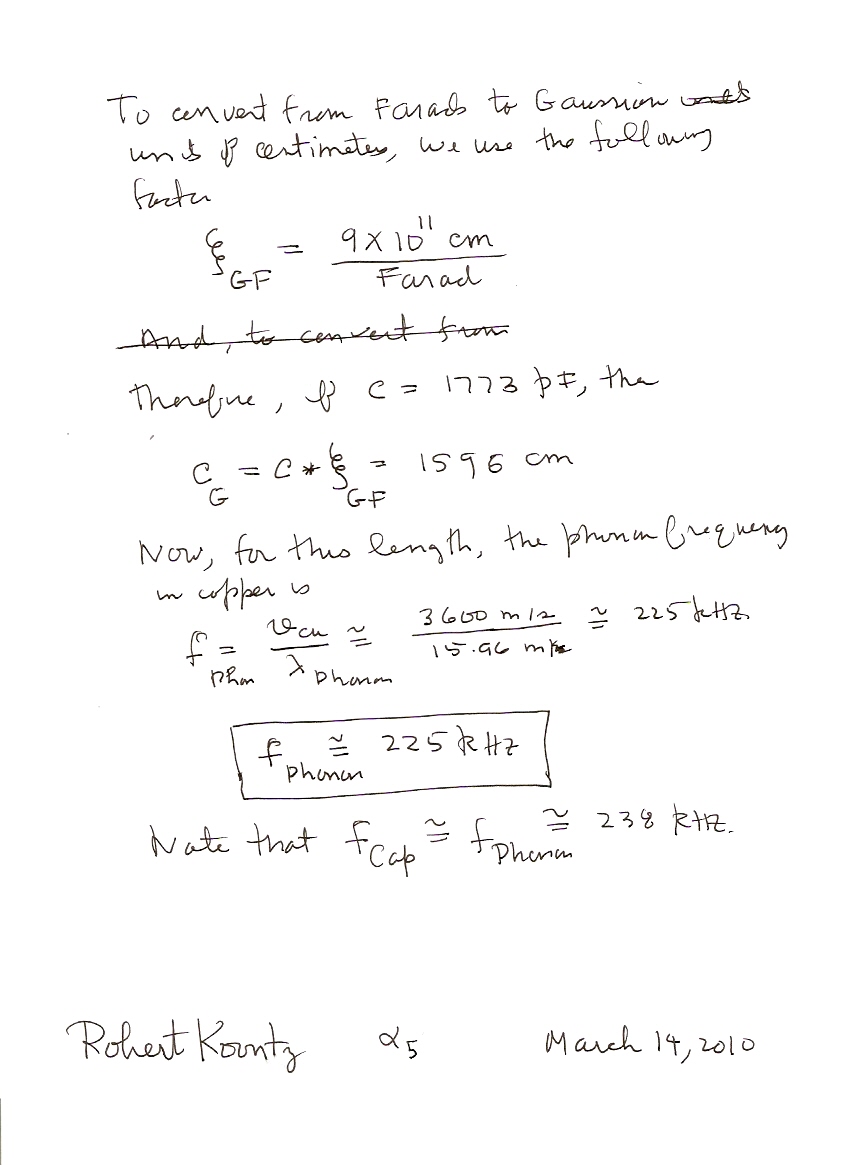 To convert from Farads to Gaussian units
units of centimeters, we use the following
factor
ξ_GF = 9 X 10^11 cm / Farad
And, to convert from
Therefore, if C = 1773 pF, the
C_G = C * ξ_GF = 1596 cm
Now, for this length, the phonon frequency
in copper is
f_phon = v_cu / λ_phonon ≅ 3600 m/s / 15.96 m ≅ 225 kHz
f_phonon ≅ 225 kHz
Note that f_Cap ≅ f_Phonon ≅ 238 kHz.
Robert Koontz α5 March 14, 2010